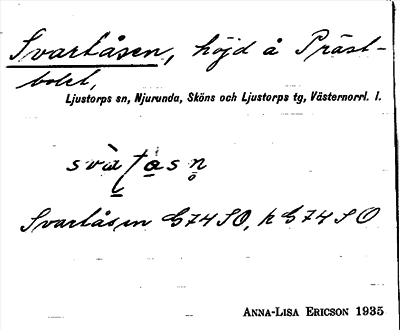 Svartåsen, höjd å Präst-
bolet,
Ljustorps sn, Njurunda, Sköns och Ljustorps tg, Västernorrl. l.
Svartåsen G74SO, h G74SO
ANNA-LISA ERICSON 1935